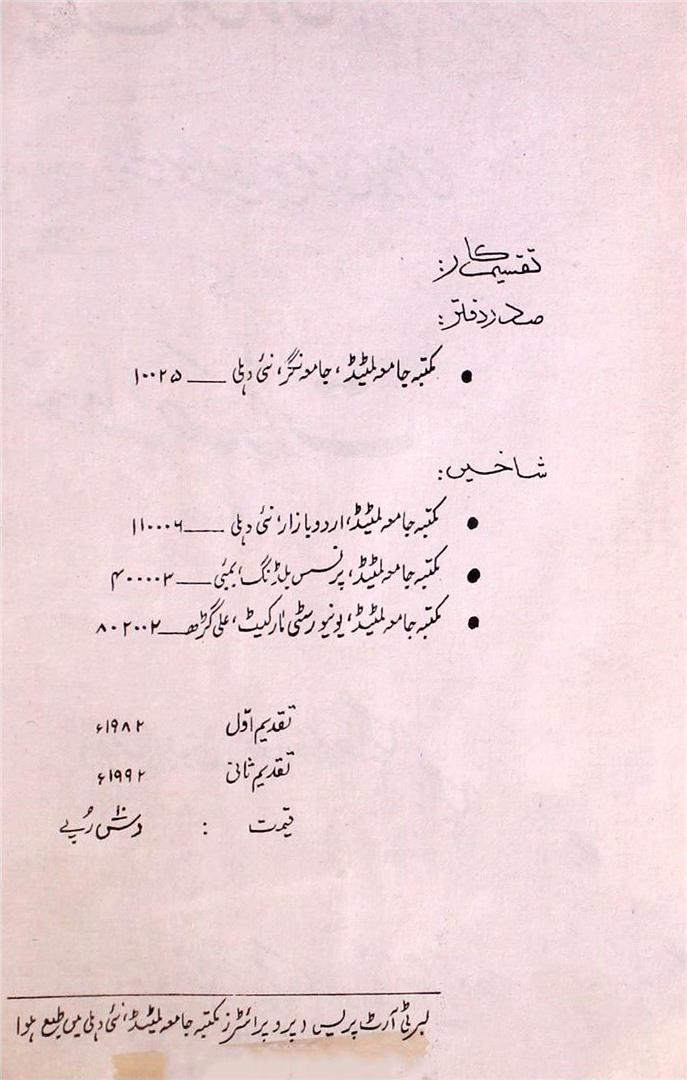 تقسیم کار:
صدر دفتر:
● مکتبہ جامعہ لمیٹڈ، جامعہ نگر، نئی دہلی ــــ ۱۰۰۲۵
شاخیں:
● مکتبہ جامعہ لمیٹڈ، اردو بازار، نئی دہلی ــــ ۱۱۰۰۰۶
● مکتبہ جامعہ لمیٹڈ، پرنسس بلڈنگ، بمبئی ــــ ۴۰۰۰۰۳
● مکتبہ جامعہ لمیٹڈ، یونیورسٹی مارکیٹ، علی گڑھ ــــ ۸۰۲۰۰۲
تقدیم اوّل ۱۹۸۲ء
تقدیم ثانی ۱۹۹۲ء
قیمت : دس ۱۰ رُپے
لبرٹی آرٹ پریس (پروپرائٹرز مکتبہ جامعہ لمیٹڈ، نئی دہلی میں طبع ہوا